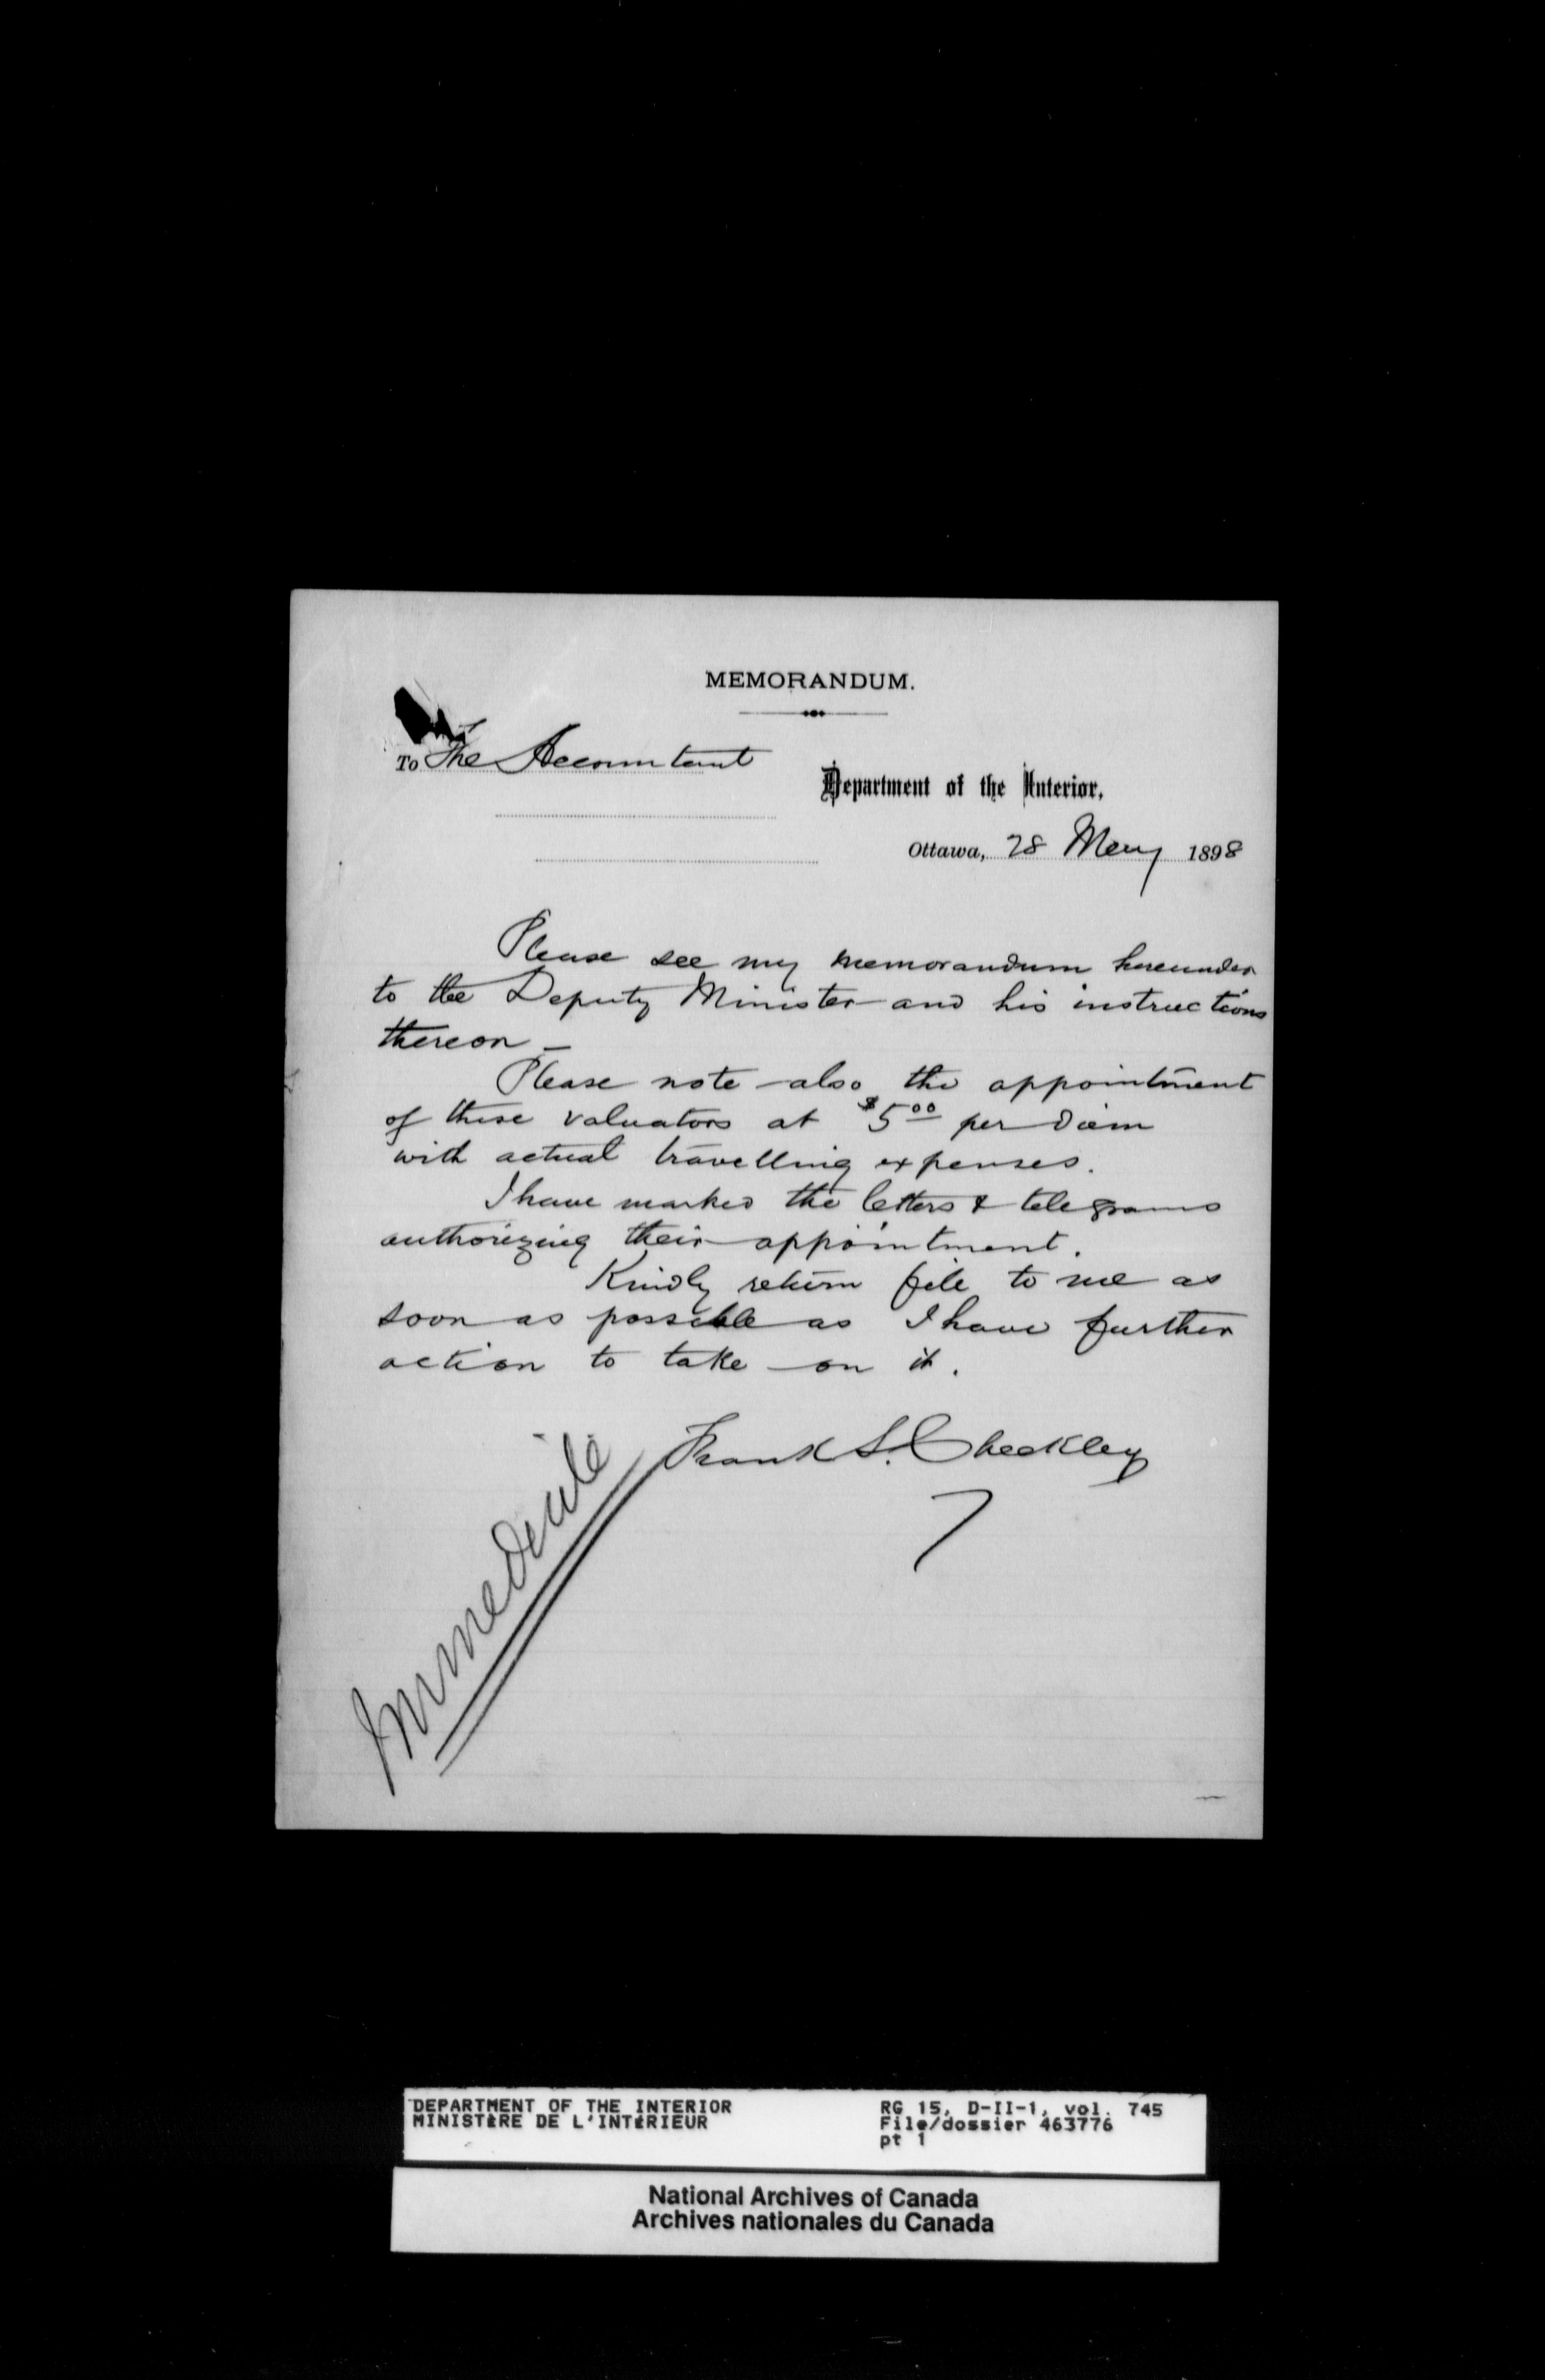 MEMORANDUM.
To The Accountant
Department of the Interior.
Ottawa, 28 May 1898
Please see my memorandum hereunder
to the Deputy Minister and his instructions
thereon —
Please note also the appointment
of these valuators at $5.00 per diem
with actual travelling expenses.
I have marked the letters & telegrams
authorizing their appointment.
Kindly return file to me as
soon as possible as I have further
action to take on it.
Frank S. Checkley
Immediate
DEPARTMENT OF THE INTERIOR
MINISTÈRE DE L'INTÉRIEUR
RG 15, D-II-1, vol. 745
File/dossier 463776
pt 1
National Archives of Canada
Archives nationales du Canada